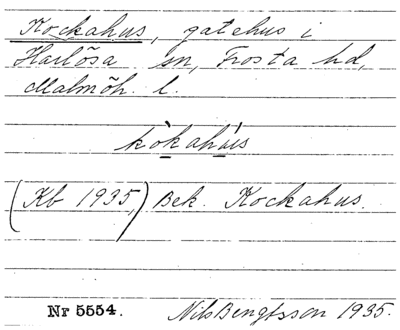 Kockahus, gatehus i
Harlõsa sn, Frosta hd,
Malmõh. l.
kòkahús
(Kb 1935,) Bek. Kockahus.
Nr 5554. Nils Bengtsson 1935.